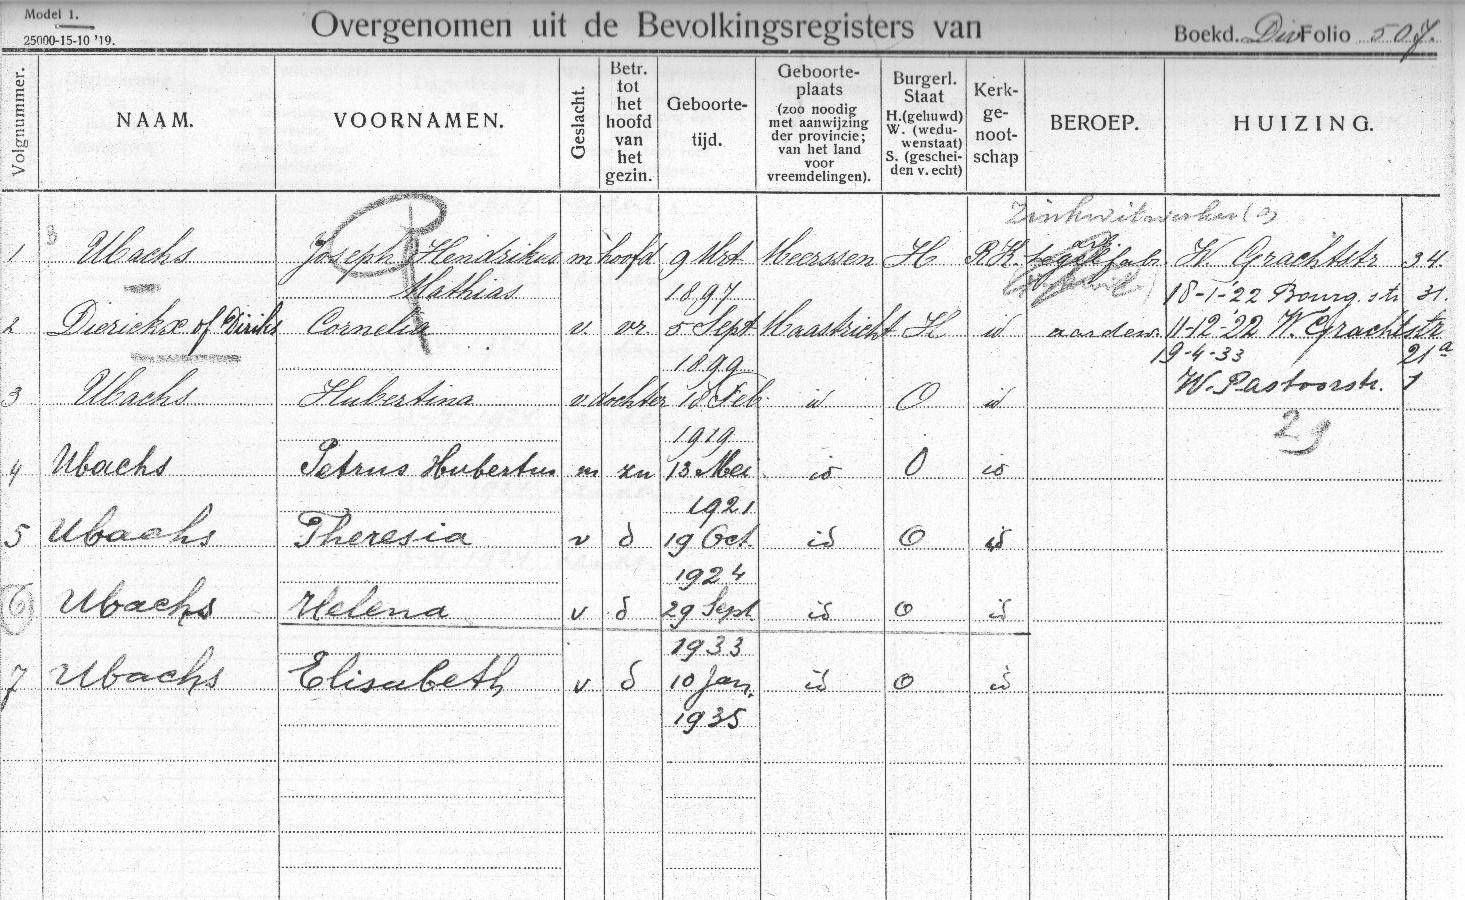 Model 1.
25000-15-10 '19.
Overgenomen uit de Bevolkingsregisters van
Boekd. Div Folio 507.
Volgnummer.
NAAM.
VOORNAMEN.
Geslacht.
Betr. tot het hoofd van het gezin.
Geboorte-tijd.
Geboorte-plaats (zoo noodig met aanwijzing der provincie; van het land voor vreemdelingen).
Burgerl. Staat H.(gehuwd) W. (wedu-wenstaat) S. (geschei-den v. echt)
Kerk-ge-noot-schap
BEROEP.
HUIZING.
Zinkwitwerker (a)
1 Ubachs Joseph Hendrikus m hoofd 9 Mrt Meerssen H R.K. W. Grachtstr 34
Mathias 1897 18-1-'22 Bourg. str 31.
2 Dierickx of Diriks Cornelia v. vr. 5 Sept Maastricht H id aardew. 11-12-'22 W. Grachtstr
1899 19-4-33 21a
3 Ubachs Hubertina v dochter 18 Feb. id O id W. Pastoorstr. 1
1919 29
4 Ubachs Petrus Hubertus m zn 13 Mei id O id
1921
5 Ubachs Theresia v d 19 Oct. id O id
1924
6 Ubachs Helena v d 29 Sept id O id
1933
7 Ubachs Elisabeth v d 10 Jan. id O id
1935